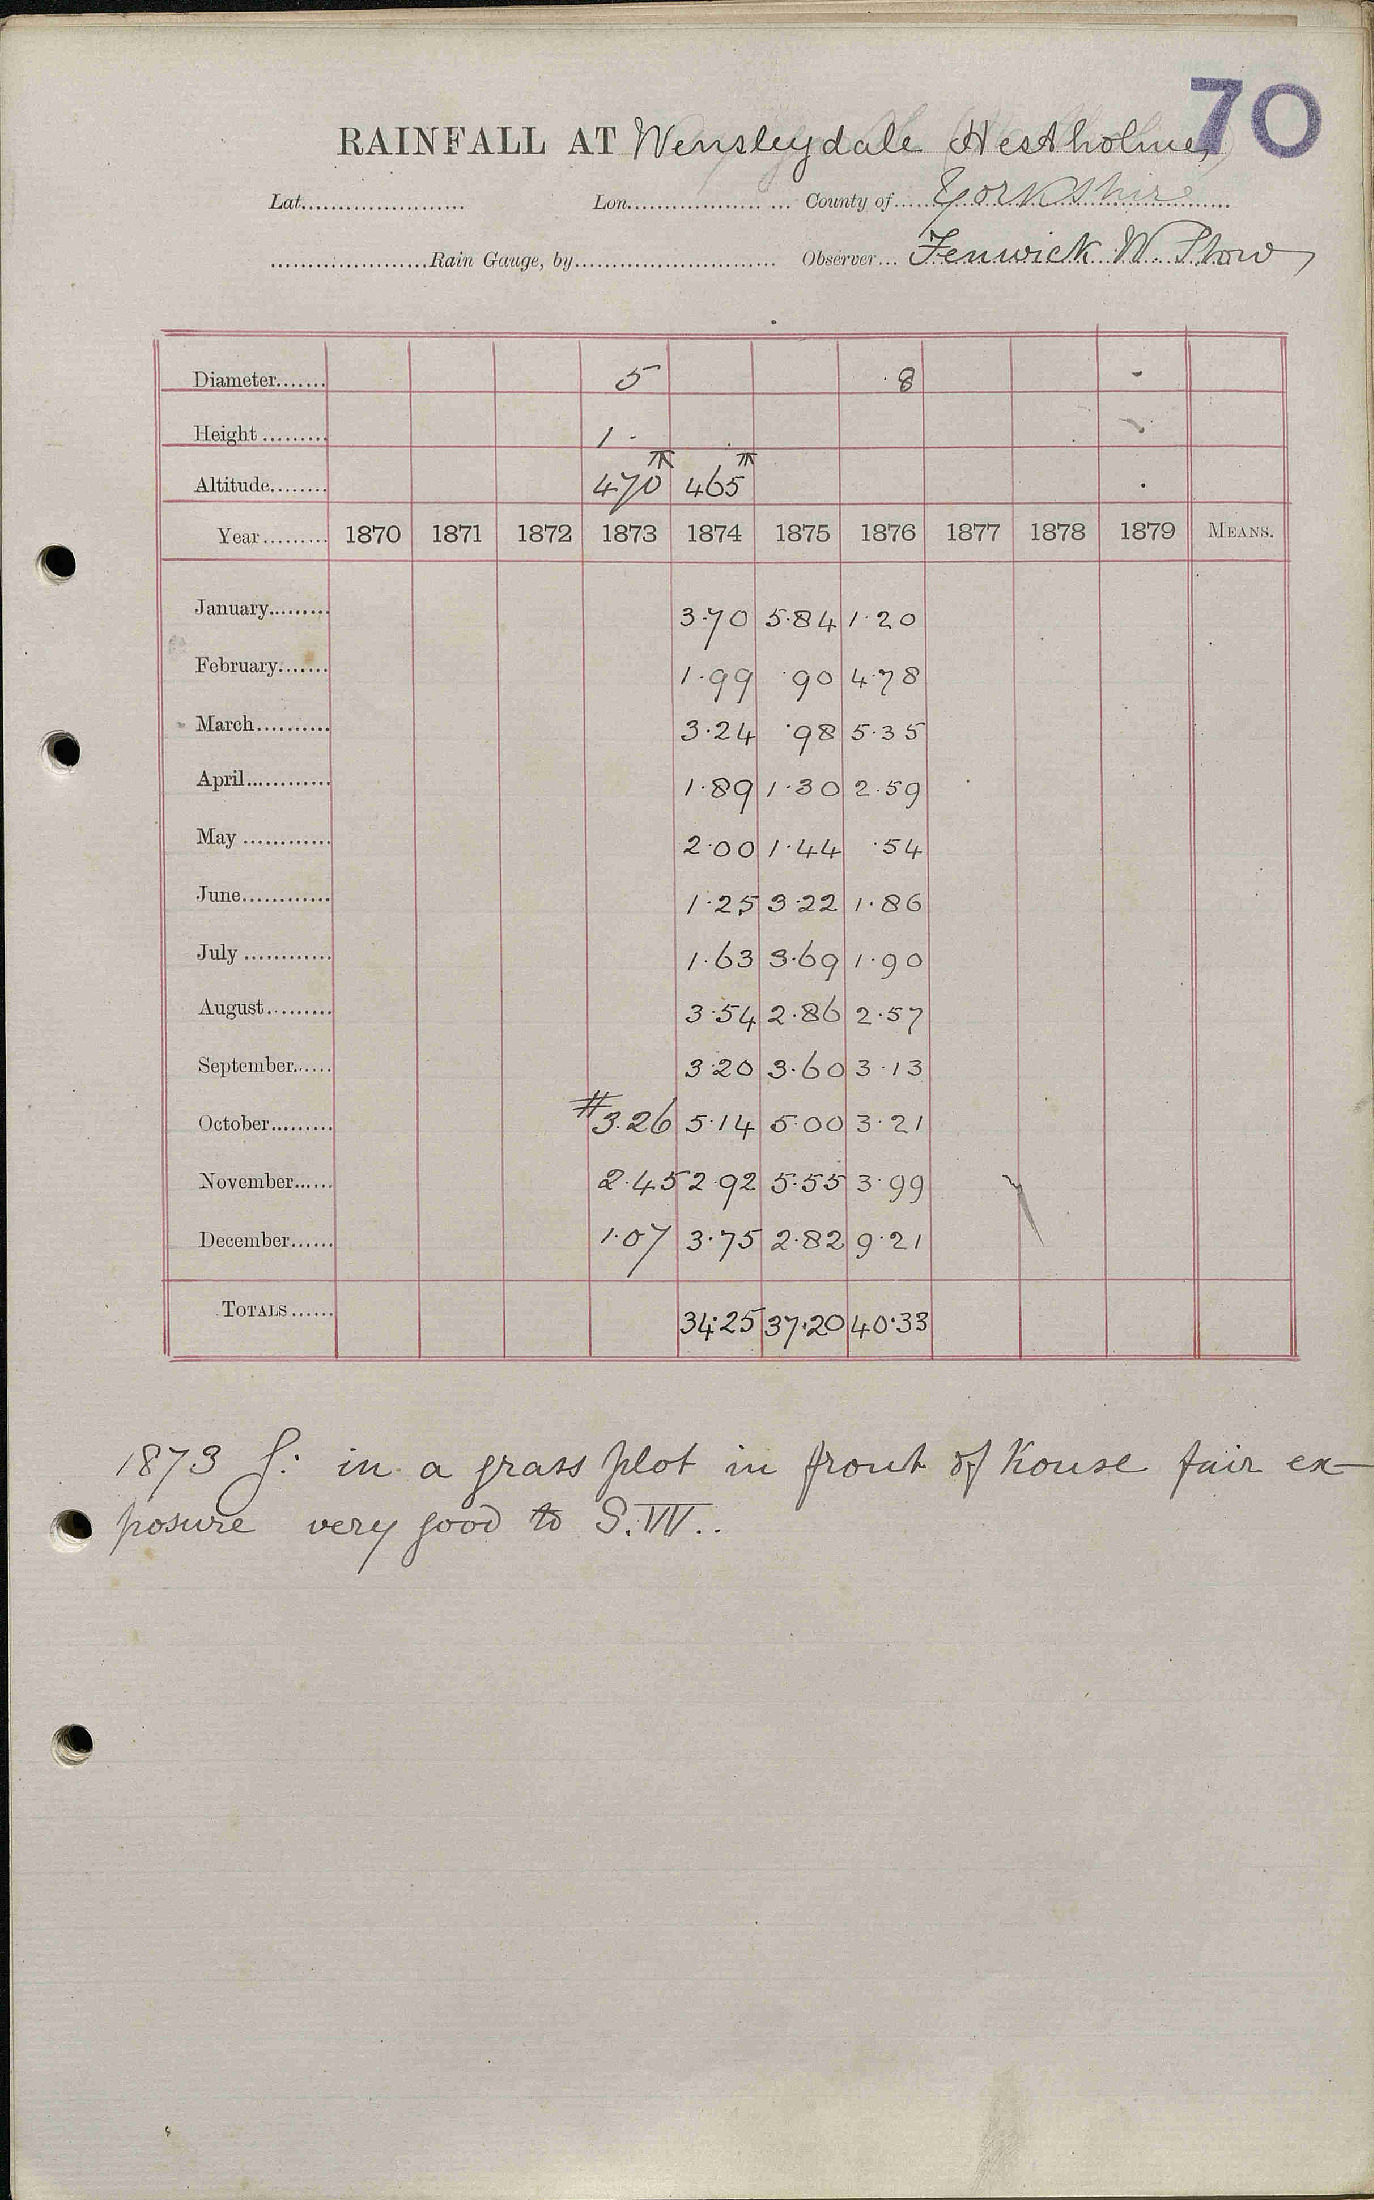 70
RAINFALL AT Wensleydale (Hestholme)
Lat...................... Lon.................. ... County of..... Yorkshire
.....................Rain Gauge, by........................... Observer... Fenwick W. Stow
Diameter....... 5 8 -
Height ......... 1 -
Altitude........ 470 465
Year......... 1870 1871 1872 1873 1874 1875 1876 1877 1878 1879 MEANS.
January......... 3.70 5.84 1.20
February....... 1.99 .90 4.78
March.......... 3.24 .98 5.35
April............ 1.89 1.30 2.59
May ............ 2.00 1.44 .54
June............ 1.25 3.22 1.86
July ............ 1.63 3.69 1.90
August......... 3.54 2.86 2.57
September...... 3.20 3.60 3.13
October......... #3.26 5.14 5.00 3.21
November...... 2.45 2.92 5.55 3.99
December...... 1.07 3.75 2.82 9.21
TOTALS...... 34.25 37.20 40.33
1873 G: in a grass plot in front of house fair ex-
posure very good to S.W..